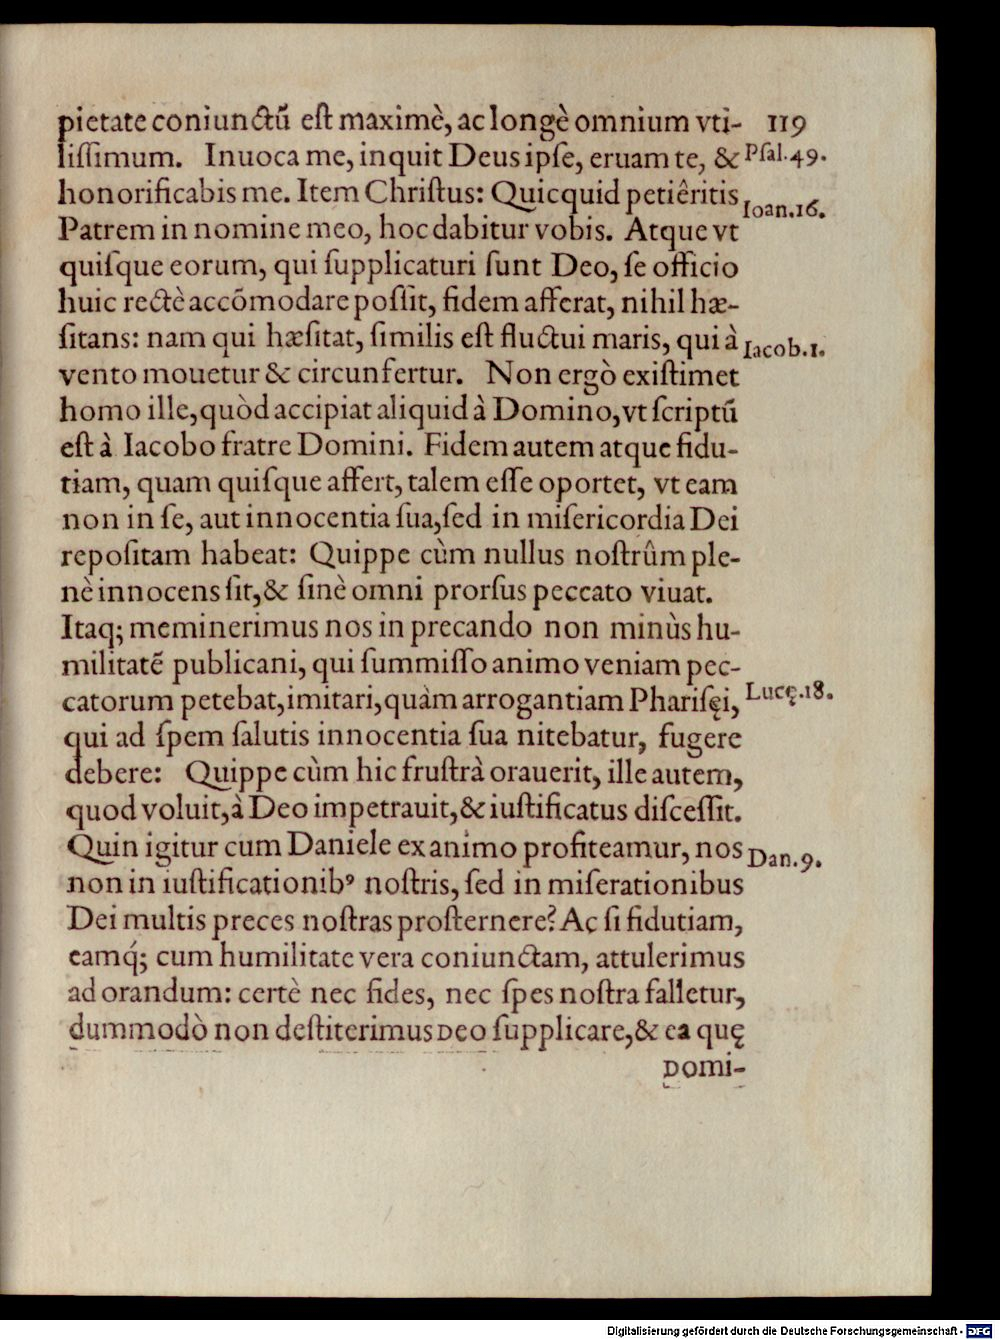 pietate coniunctū est maximè, ac longè omnium vti- 119
lissimum. Inuoca me, inquit Deus ipse, eruam te, & Psal.49.
honorificabis me. Item Christus: Quicquid petiêritis
Ioan.16.
Patrem in nomine meo, hoc dabitur vobis. Atque vt
quisque eorum, qui supplicaturi sunt Deo, se officio
huic rectè accōmodare possit, fidem afferat, nihil hæ-
sitans: nam qui hæsitat, similis est fluctui maris, qui à Iacob.1.
vento mouetur & circunfertur. Non ergò existimet
homo ille, quòd accipiat aliquid à Domino, vt scriptū
est à Iacobo fratre Domini. Fidem autem atque fidu-
tiam, quam quisque affert, talem esse oportet, vt eam
non in se, aut innocentia sua, sed in misericordia Dei
repositam habeat: Quippe cùm nullus nostrûm ple-
nè innocens sit, & sinè omni prorsus peccato viuat.
Itaq; meminerimus nos in precando non minùs hu-
militatē publicani, qui summisso animo veniam pec-
catorum petebat, imitari, quàm arrogantiam Pharisęi, Lucę.18.
qui ad spem salutis innocentia sua nitebatur, fugere
debere: Quippe cùm hic frustrà orauerit, ille autem,
quod voluit, à Deo impetrauit, & iustificatus discessit.
Quin igitur cum Daniele ex animo profiteamur, nos Dan.9.
non in iustificationibꝰ nostris, sed in miserationibus
Dei multis preces nostras prosternere? Ac si fidutiam,
eamq́; cum humilitate vera coniunctam, attulerimus
ad orandum: certè nec fides, nec spes nostra falletur,
dummodò non destiterimus DEO supplicare, & ea quę
DOMI-
Digitalisierung gefördert durch die Deutsche Forschungsgemeinschaft - DFG